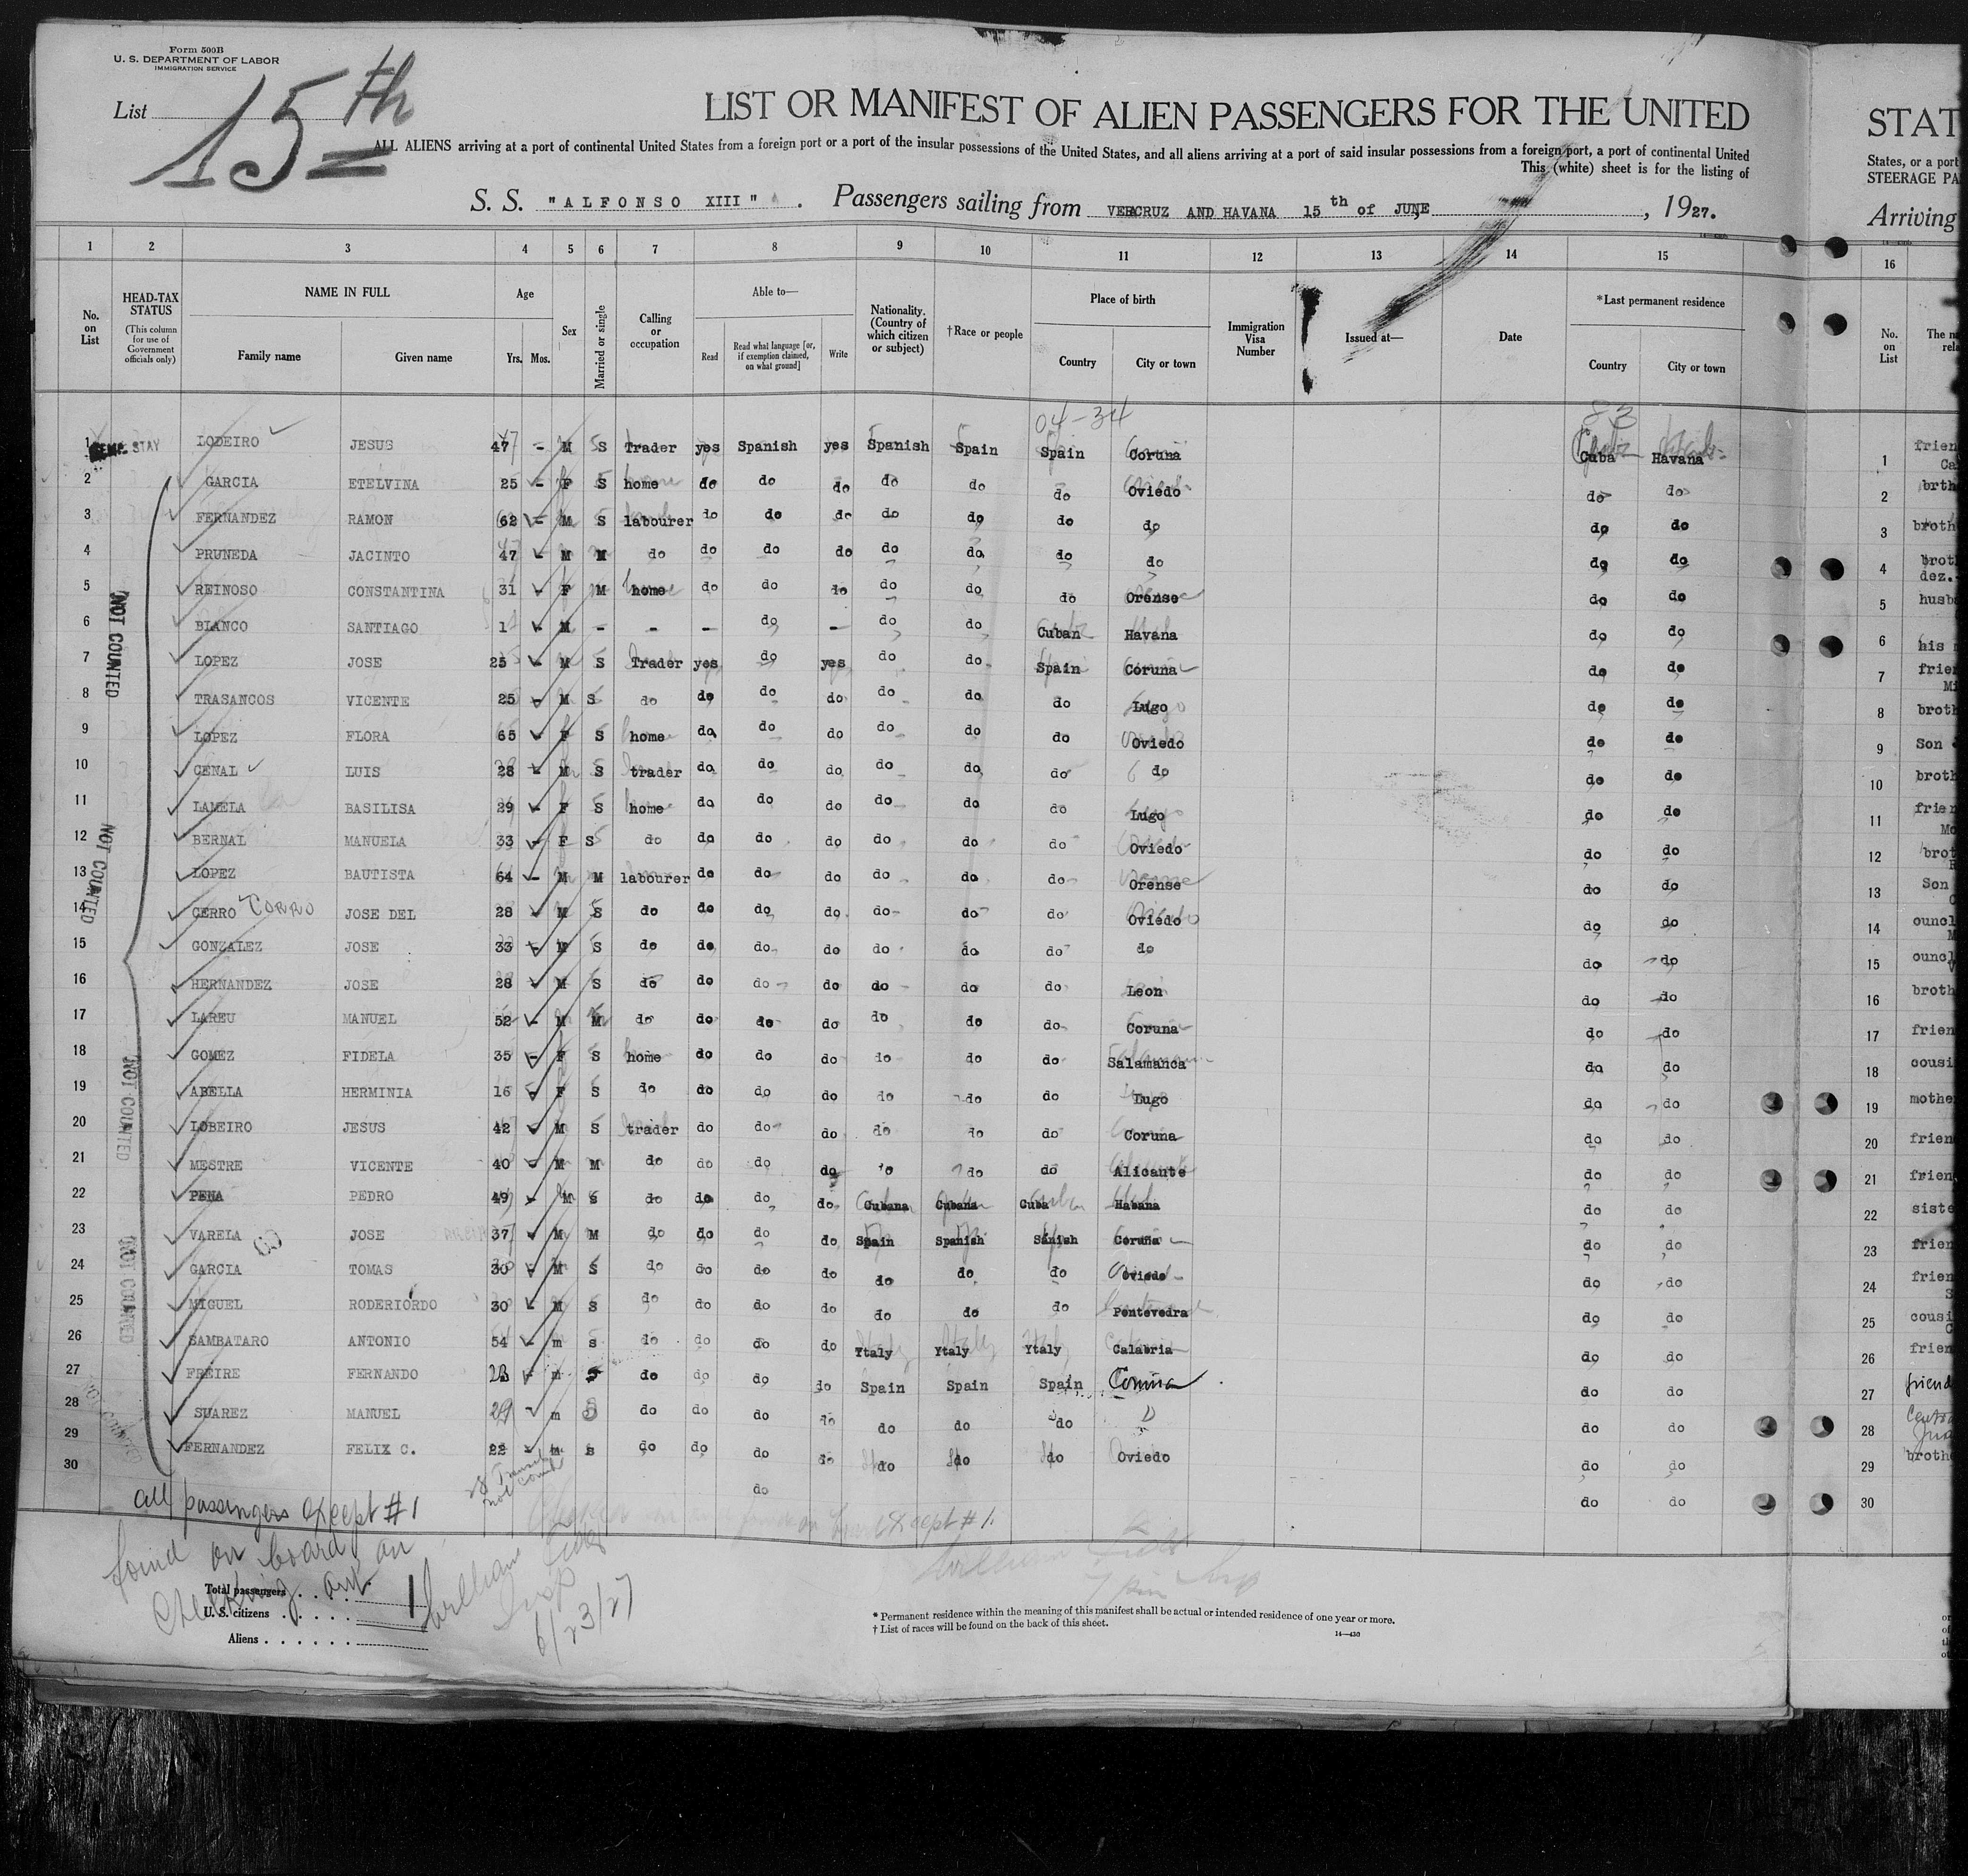 Form 500B
U. S. DEPARTMENT OF LABOR
IMMIGRATION SERVICE
List 15th
LIST OR MANIFEST OF ALIEN PASSENGERS FOR THE UNITED
STAT
ALL ALIENS arriving at a port of continental United States from a foreign port or a port of the insular possessions of the United States, and all aliens arriving at a port of said insular possessions from a foreign port, a port of continental United
States, or a port
This (white) sheet is for the listing of
STEERAGE PA
S. S. "ALFONSO XIII" . Passengers sailing from VERCRUZ AND HAVANA 15 th of JUNE , 1927.
Arriving
1 2 3 4 5 6 7 8 9 10 11 12 13 14 15 16
No. on List
HEAD-TAX STATUS (This column for use of Government officials only)
NAME IN FULL Family name Given name
Age Yrs. Mos.
Sex
Married or single
Calling or occupation
Able to— Read Read what language [or, if exemption claimed, on what ground] Write
Nationality. (Country of which citizen or subject)
†Race or people
Place of birth Country City or town
Immigration Visa Number
Issued at—
Date
*Last permanent residence Country City or town
No. on List
04-34 83
1 TEMP. STAY LODEIRO JESUS 47 - M S Trader yes Spanish yes Spanish Spain Spain Coruna Cuba Havana 1
2 GARCIA ETELVINA 25 - F S home do do do do do do Oviedo do do 2
3 FERNANDEZ RAMON 62 - M S labourer do do do do do do do do do 3
4 PRUNEDA JACINTO 47 - M M do do do do do do do do do do 4
5 REINOSO CONSTANTINA 31 - F M home do do do do do do Orense do do 5
6 BLANCO SANTIAGO 1 - M - - - do - do do Cuban Havana do do 6
7 LOPEZ JOSE 25 - M S Trader yes do yes do do Spain Coruna do do 7
8 TRASANCOS VICENTE 25 - M S do do do do do do do Lugo do do 8
9 LOPEZ FLORA 65 - F S home do do do do do do Oviedo do do 9
10 CENAL LUIS 28 - M S trader do do do do do do do do do 10
11 LAMELA BASILISA 29 - F S home do do do do do do Lugo do do 11
12 BERNAL MANUELA 33 - F S do do do do do do do Oviedo do do 12
13 LOPEZ BAUTISTA 64 - M M labourer do do do do do do Orense do do 13
14 CERRO CORRO JOSE DEL 28 - M S do do do do do do do Oviedo do do 14
15 GONZALEZ JOSE 33 - M S do do do do do do do do do do 15
16 HERNANDEZ JOSE 28 - M S do do do do do do do Leon do do 16
17 LAREU MANUEL 52 - M M do do do do do do do Coruna do do 17
18 GOMEZ FIDELA 35 - F S home do do do do do do Salamanca do do 18
19 ABELLA HERMINIA 16 F S do do do do do do do Lugo do do 19
20 LOBEIRO JESUS 42 - M S trader do do do do do do Coruna do do 20
21 MESTRE VICENTE 40 - M M do do do do do do do Alicante do do 21
22 PENA PEDRO 49 - M S do do do do Cubana Cubana Cuba Habana do do 22
23 VARELA JOSE 37 - M M do do do do Spain Spanish Sanish Coruña do do 23
24 GARCIA TOMAS 30 - M S do do do do do do do Oviedo do do 24
25 MIGUEL RODERIORDO 30 - M S do do do do do do do Pontevedra do do 25
26 SAMBATARO ANTONIO 54 - m s do do do do Ytaly Ytaly Ytaly Calabria do do 26
27 FREIRE FERNANDO - m S do do do do Spain Spain Spain Coruña do do 27 friend
28 SUAREZ MANUEL 29 m S do do do do do do do D do do 28
29 FERNANDEZ FELIX C. 22 - m s do do do do do do do Oviedo do do 29
30 do do do 30
NOT COUNTED
NOT COUNTED
NOT COUNTED
NOT COUNTED
NOT COUNTED
28 Transit not count
all passengers except #1
found on board on
checking out
except #1.
William
Insp
6/23/27
Total passengers
U. S. citizens
Aliens
1
* Permanent residence within the meaning of this manifest shall be actual or intended residence of one year or more.
† List of races will be found on the back of this sheet.
14—430